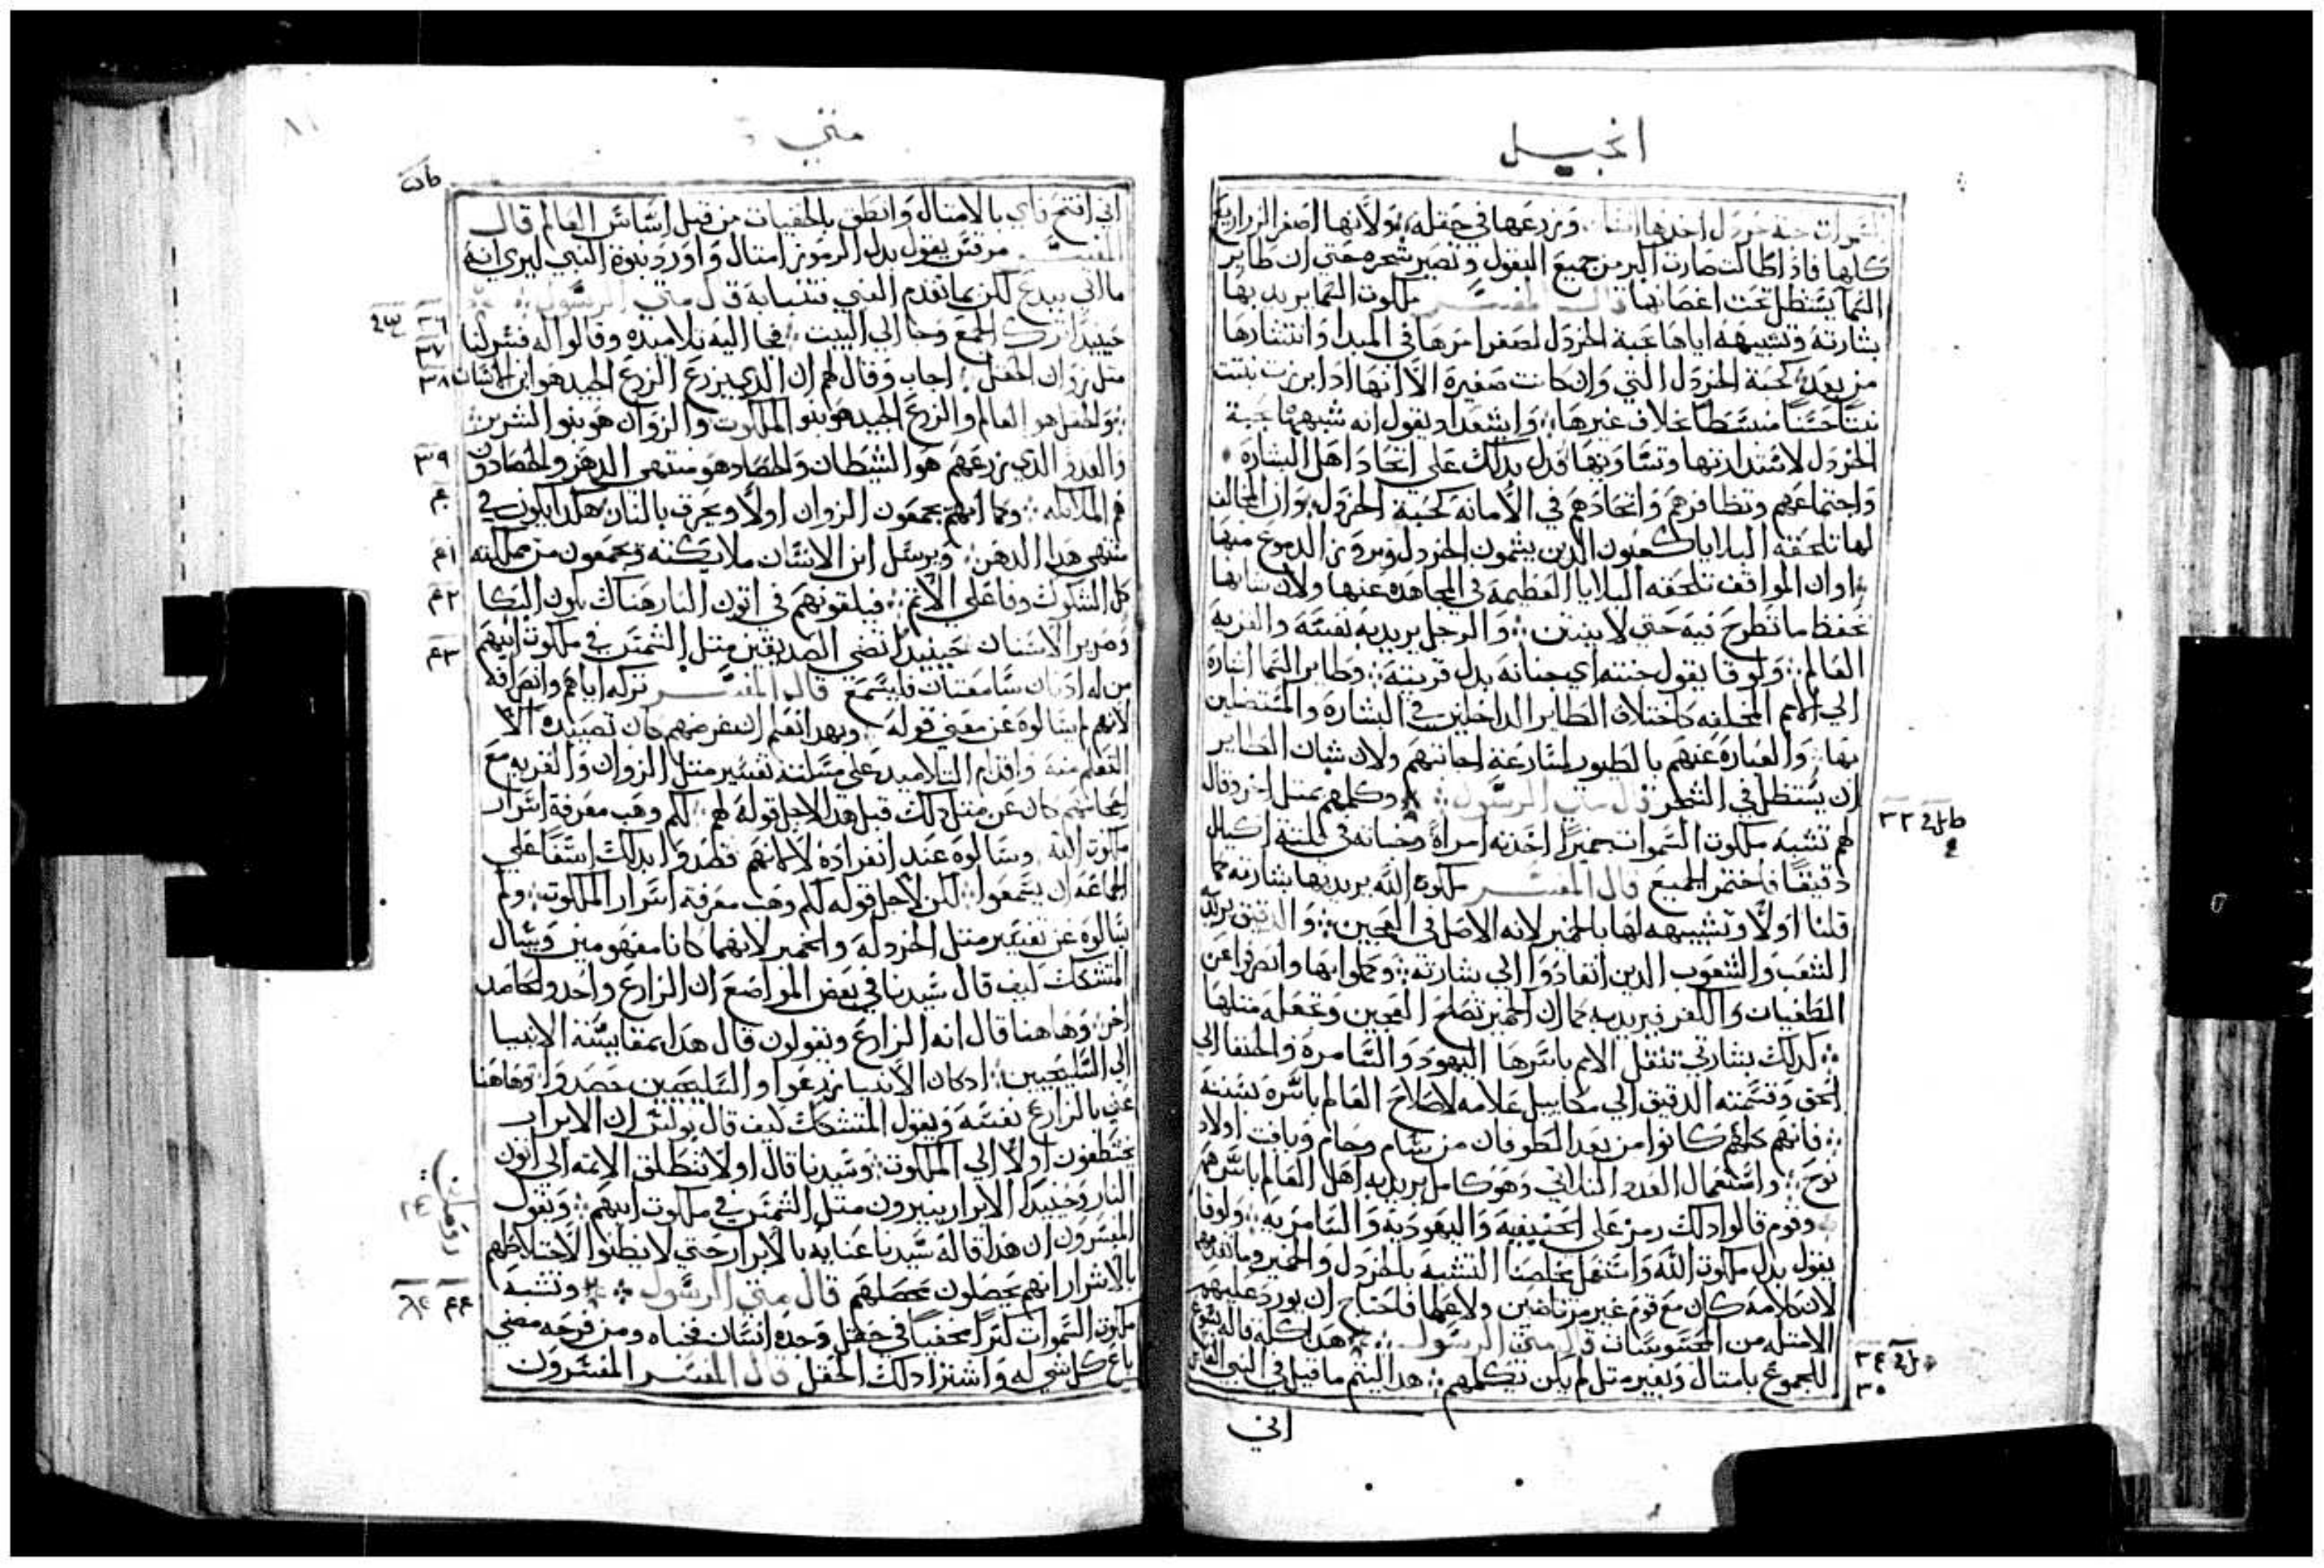 انجيل
السموات حبة خردل اخدها انسان وزرعها في حقله ولانها اصغر الزراريع
كلها فاذا طالت صارت اكبر من جميع البقول وتصير شجره حتي ان طاير
السما يستظل تحت اغصانها قال المفسر ملكوت السما يريد بها
بشارته وتشبيهه اياها بحبة الخردل لصغر امرها في المبدا وانتشارها
من بعد كحبة الخردل التي وان كانت صغيره الا انها ادا ابزرت نبتت
نبتا حسنا منبسطا بخلاف غيرها وايشعداد يقول انه شبهها بحبة
الخردل لاستدارتها وتساويها فدل بدلك علي اتحاد اهل البشاره
واجتماعهم وتظافرهم واتحادهم في الامانه كحبة الخردل وان المخالف
لها تلحقه البلايا كعيون الدين يشمون الخردل وبروز الدموع منها
او ان الموافق تلحقه البلايا العظيمة في المجاهده عنها ولان شانها
تحفظ ما تطرح فيه حتي لا ينتن والرجل يريد به نفسه والقريه
العالم ولوقا يقول جنته اي جنانه بدل قريته وطاير السما اشارة
الي الامم المختلفه كاختلاف الطاير الداخلين في البشاره والمستظلين
بها والعباره عنهم بالطيور لمسارعة اجابتهم ولان شان الطاير
ان يستظل في الشجر قال متي الرسول وكلمهم بمثل اخر وقال
٣٣
لهم تشبه ملكوت السموات خميرا اخدته امراة وخباته في ثلثة اكيال
دقيقا فاختمر الجميع قال المفسر ملكوة الله يريد بها بشارته كما
قلنا اولا وتشبيهه لها بالخمير لانه الاصل في العجين والدقيق يريد
الشعب والشعوب الدين انقادوا الي بشارته وعملوا بها وانصرفوا عن
الطغيان والكفر فيريد به كما ان الخمير تصلح العجين وتجعله مثلها
كدلك بشارتي تنقل الامم باسرها اليهود والسامرة والحنفا الي
الحق وقسمته الدقيق الي مكاييل علامه لاصلاح العالم باسره بسننه
فانهم كلهم كانوا من بعد الطوفان من سام وحام ويافت اولاد
نوح واستعمال العدد الثلاثي وهو كامل يريد به اهل العالم باسرهم
وقوم قالوا دلك رمز علي الحنيفيه واليهوديه والسامريه ولوقا
يقول بدل ملكوت الله واستعمل مخلصنا التشبيه بالخردل والخمير وما تقدمهم
لان كلامه كان مع قوم غير مرتاضين ولا علما فاحتاج ان يورد عليهم
الامتله من المحسوسات قال متي الرسول هدا كله قاله يسوع
٣٤
للجموع بامتال وبغير متل لم يكن يكلمهم هدا ليتم ما قيل في النبي القايل
٣٥
اني
متي
اني افتح فاي بالامتال وانطق بالخفيات من قبل اساس العالم قال
المفسر مرقس يقول بدل الرموز امتال واورد نبوة النبي ليري انه
ما اتي ببدع لكن بما تقدم النبي فتنبا به قال متي الرسول
٣٦
حينيدا ترك الجمع وجا الي البيت فجا اليه تلاميده وقالوا له فسر لنا
٣٧
متل زوان الحقل اجاب وقال لهم ان الدي يزرع الزرع الجيد هو ابن الانسان
٣٨
والحقل هو العالم والزرع الجيد هو بنو الملكوت والزوان هو بنو الشرير
والعدو الدي يزرعهم هو الشيطان والحصاد هو منتهي الدهر والحصادون
٣٩
هم الملايكه وكما انهم يجمعون الزوان اولا ويحرق بالنار هكدا يكون في
٤٠
منتهي هدا الدهر ويرسل ابن الانسان ملايكته ويجمعون من مملكته
٤١
كل الشكوك وفاعلي الاتم فيلقونهم في اتون النار هناك يكون البكا
٤٢
وصرير الاسنان حينيدا تضي الصديقين متل الشمس في ملكوت ابيهم
٤٣
من له ادنان سامعتان فليسمع قال المفسر تركه اياهم وانصرافه
لانهم لم يسالوه عن معني قوله وبهدا نعلم ان غرضهم كان تصيده الا
التعلم منه واقدام التلاميد علي مسلته تفسير متل الزوان والقريه مع
اجابتهم كان عن متل دلك قبل هدا لاجل قوله لهم لكم وهب معرفة اسرار
ملكوت الله وسالوه عند انفراده لا لانهم قصدوا بدلك اسفا علي
الجماعه ان يسمعوا لكن لاجل قوله لكم وهب معرفة اسرار الملكوت ولم
يسالوه عن تفسير متل الخردله والخمير لانهما كانا مفهومين ويسال
المتشكك كيف قال سيدنا في بعض المواضع ان الزارع واحد والحاصد
اخر وهاهنا قال انه الزارع ويقولون قال هدا بمقايسة الانبيا
الي السليحيين ادكان الانبيا زرعوا والسليحيين حصدوا وهاهنا
عني بالزارع نفسه ويقول المتشكك كيف قال بولس ان الابرار
يختطفون اولا الي الملكوت وسيدنا قال اولا تنطلق الاتمه الي اتون
النار وحينيدا الابرار ينيرون متل الشمس في ملكوت ابيهم ويقول
المفسرون ان هدا قاله سيدنا عنايه بالابرار حتي لا يظنوا لاختلاطهم
بالاشرار انهم يحصلون محصلهم قال متي الرسول وتشبه
٤٤
ملكوت السموات كنزا مخفيا في حقل وجده انسان فخباه ومن فرحه مضي
باع كل شي له واشترا دلك الحقل قال المفسر المفسرون